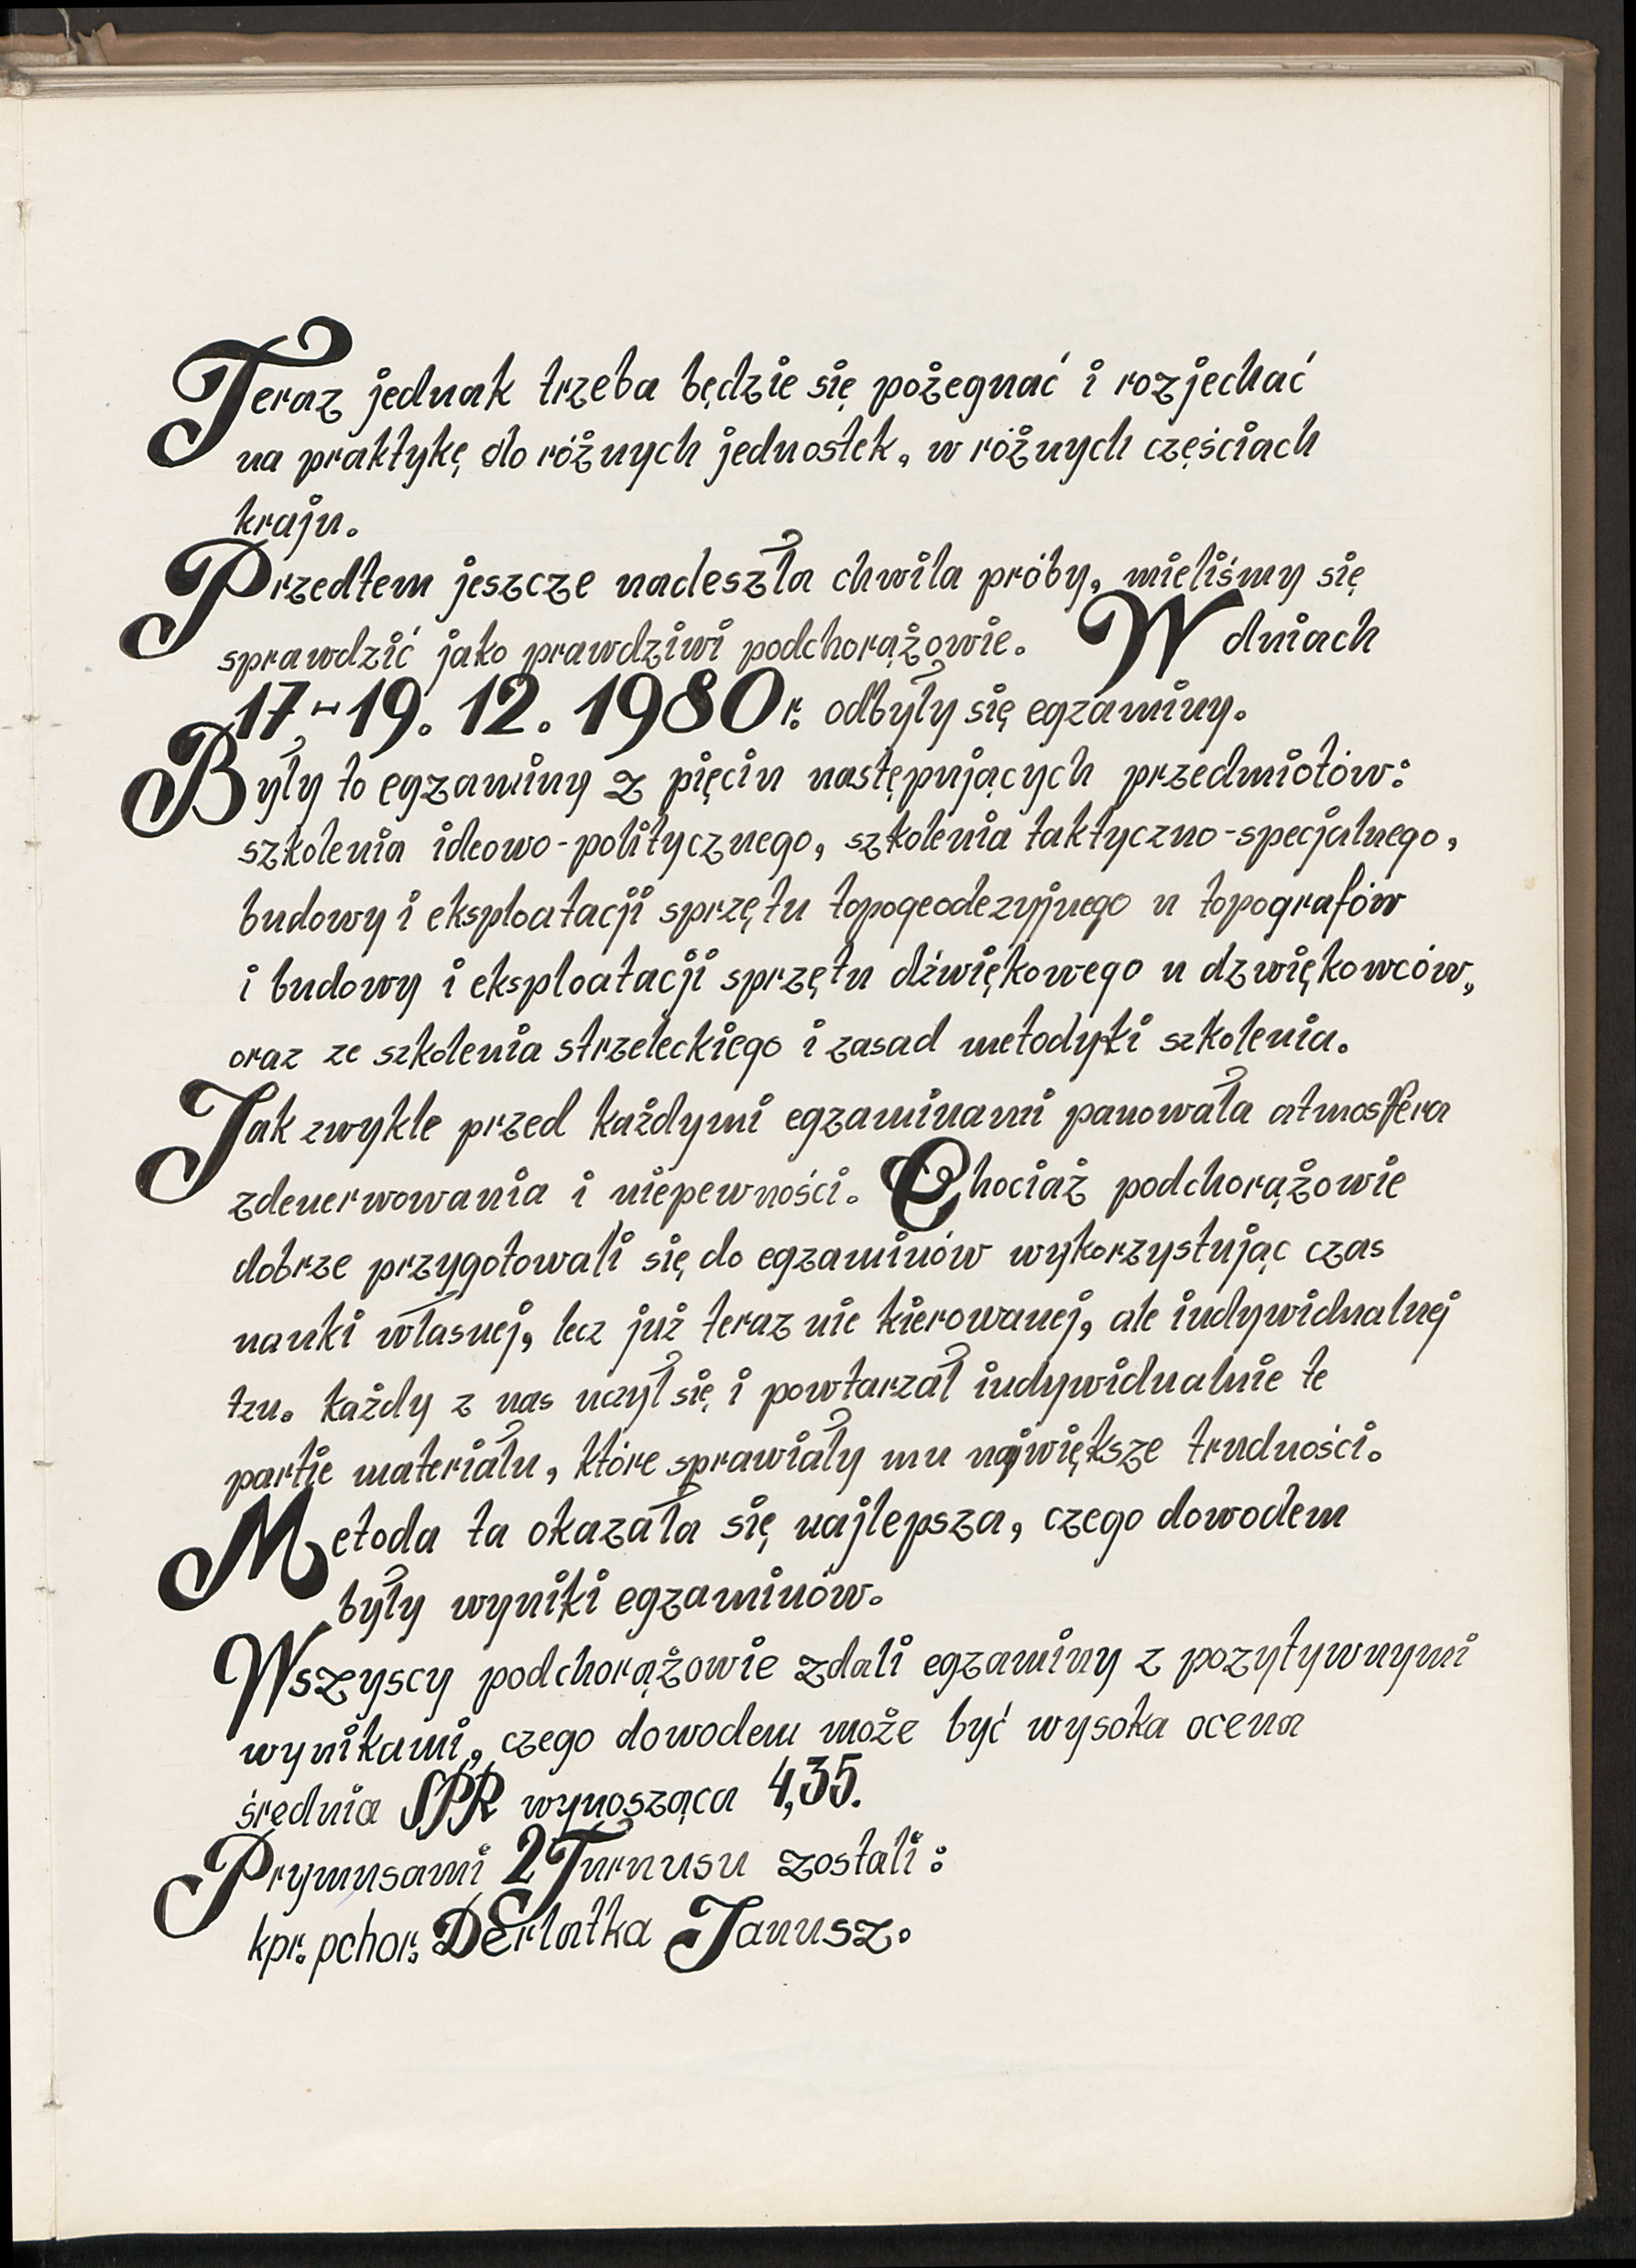 Teraz jednak trzeba będzie się pożegnać i rozjechać
na praktykę do różnych jednostek, w różnych częściach
kraju.
Przedtem jeszcze nadeszła chwila próby, mieliśmy się
sprawdzić jako prawdziwi podchorążowie. W dniach
17-19. 12. 1980r. odbyły się egzaminy.
Były to egzaminy z pięciu następujących przedmiotów:
szkolenia ideowo-politycznego, szkolenia taktyczno-specjalnego,
budowy i eksploatacji sprzętu topogeodezyjnego u topografów
i budowy i eksploatacji sprzętu dźwiękowego u dzwiękowców,
oraz ze szkolenia strzeleckiego i zasad metodyki szkolenia.
Jak zwykle przed każdymi egzaminami panowała atmosfera
zdenerwowania i niepewności. Chociaż podchorążowie
dobrze przygotowali się do egzaminów wykorzystując czas
nauki własnej, lecz już teraz nie kierowanej, ale indywidualnej
tzn. każdy z nas uczył się i powtarzał indywidualnie te
partie materiału, które sprawiały mu największe trudności.
Metoda ta okazała się najlepsza, czego dowodem
były wyniki egzaminów.
Wszyscy podchorążowie zdali egzaminy z pozytywnymi
wynikami, czego dowodem może być wysoka ocena
średnia SPR wynosząca 4,35.
Prymusami 2 Turnusu zostali:
kpr. pchor. DErlatka Janusz.